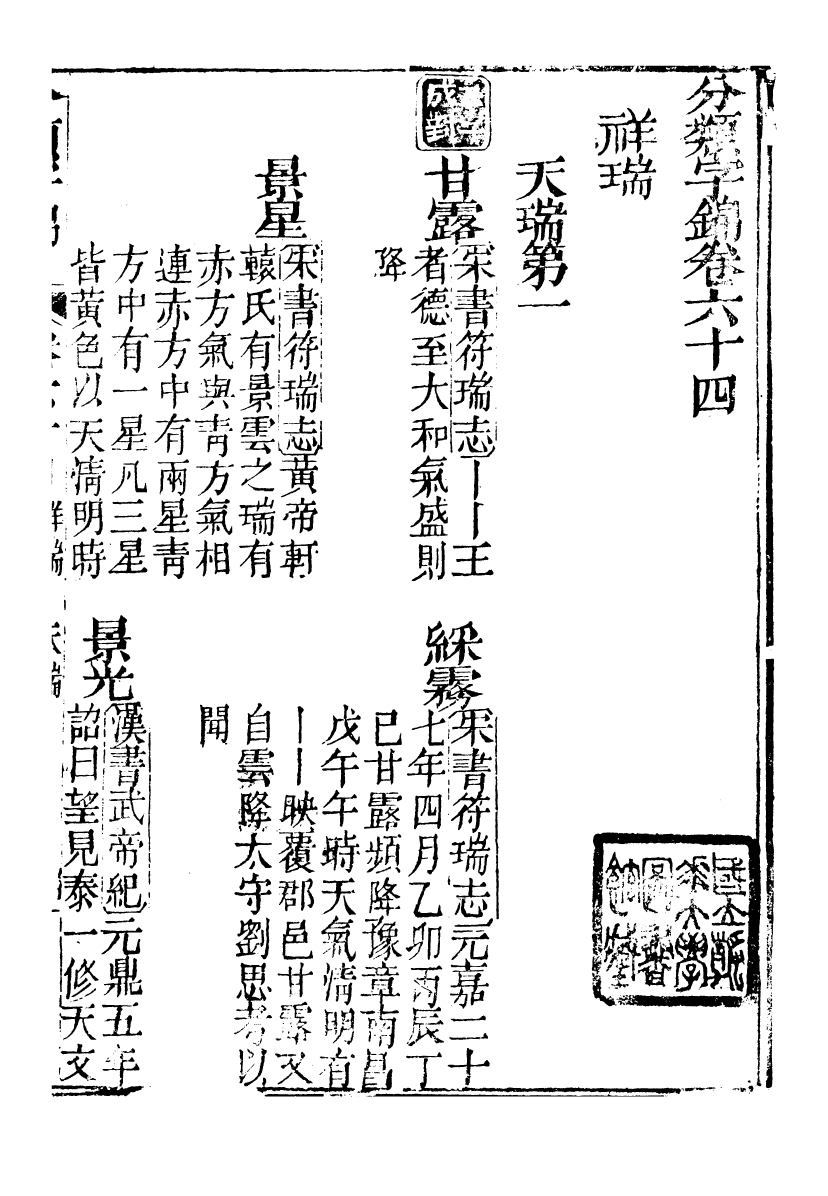 分類字錦卷六十四
祥瑞
天瑞第一
甘露
宋書符瑞志｜｜王
者德至大和氣盛則
降
綵霧
宋書符瑞志元嘉二十
七年四月乙卯丙辰丁
巳甘露頻降豫章南昌
戊午午時天氣清明有
｜｜映覆郡邑甘露又
自雲降太守劉思考以
聞
景星
宋書符瑞志黃帝軒
轅氏有景雲之瑞有
赤方氣與青方氣相
連赤方中有兩星青
方中有一星凡三星
皆黃色以天清明時
景光
漢書武帝紀元鼎五年
詔曰望見泰一修天文
國立北
平大學
圖書
館藏